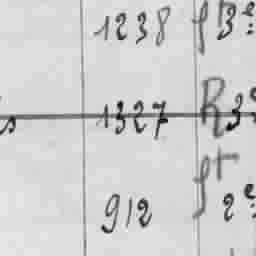 1238 ft 3e:
s 1327 R 3e
912 ft 2e: